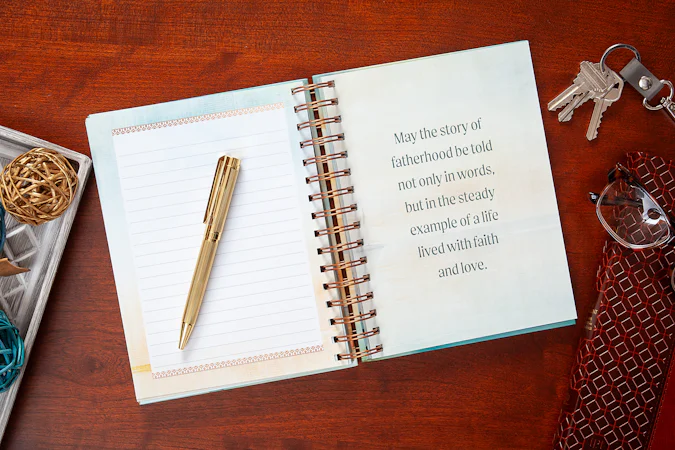 May the story of
fatherhood be told
not only in words,
but in the steady
example of a life
lived with faith
and love.